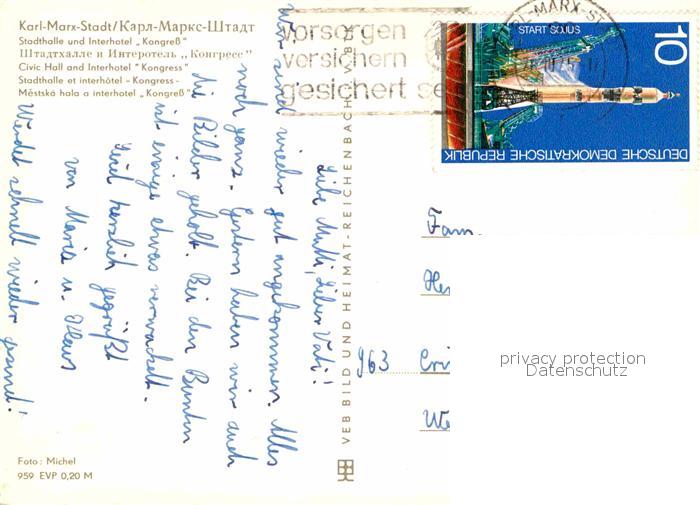 Karl-Marx-Stadt/Карл-Маркс-Штадт
Stadthalle und Interhotel „Kongreß"
Штадтхалле и Интеротель „Конгресс"
Civic Hall and Interhotel "Kongress"
Stadthalle et interhôtel - Kongress -
Městská hala a interhotel „Kongreß"
vorsorgen
versichern
gesichert se
KARL-MARX-S
START SOJUS
10
DEUTSCHE DEMOKRATISCHE REPUBLIK
Liebe Mutti, lieber Vati!
Wir sind wieder gut angekommen. Alles
noch ganz. Gestern haben wir auch
die Bilder geholt. Bei den Bunten
ist einige etwas verwackelt.
Seid herzlich gegrüßt
von Maria u. Klaus
Werdet schnell wieder gesund!
VEB BILD UND HEIMAT · REICHENBACH I. V. BK
Fam.
He
963 Cri
We
privacy protection
Datenschutz
Foto: Michel
959 EVP 0,20 M